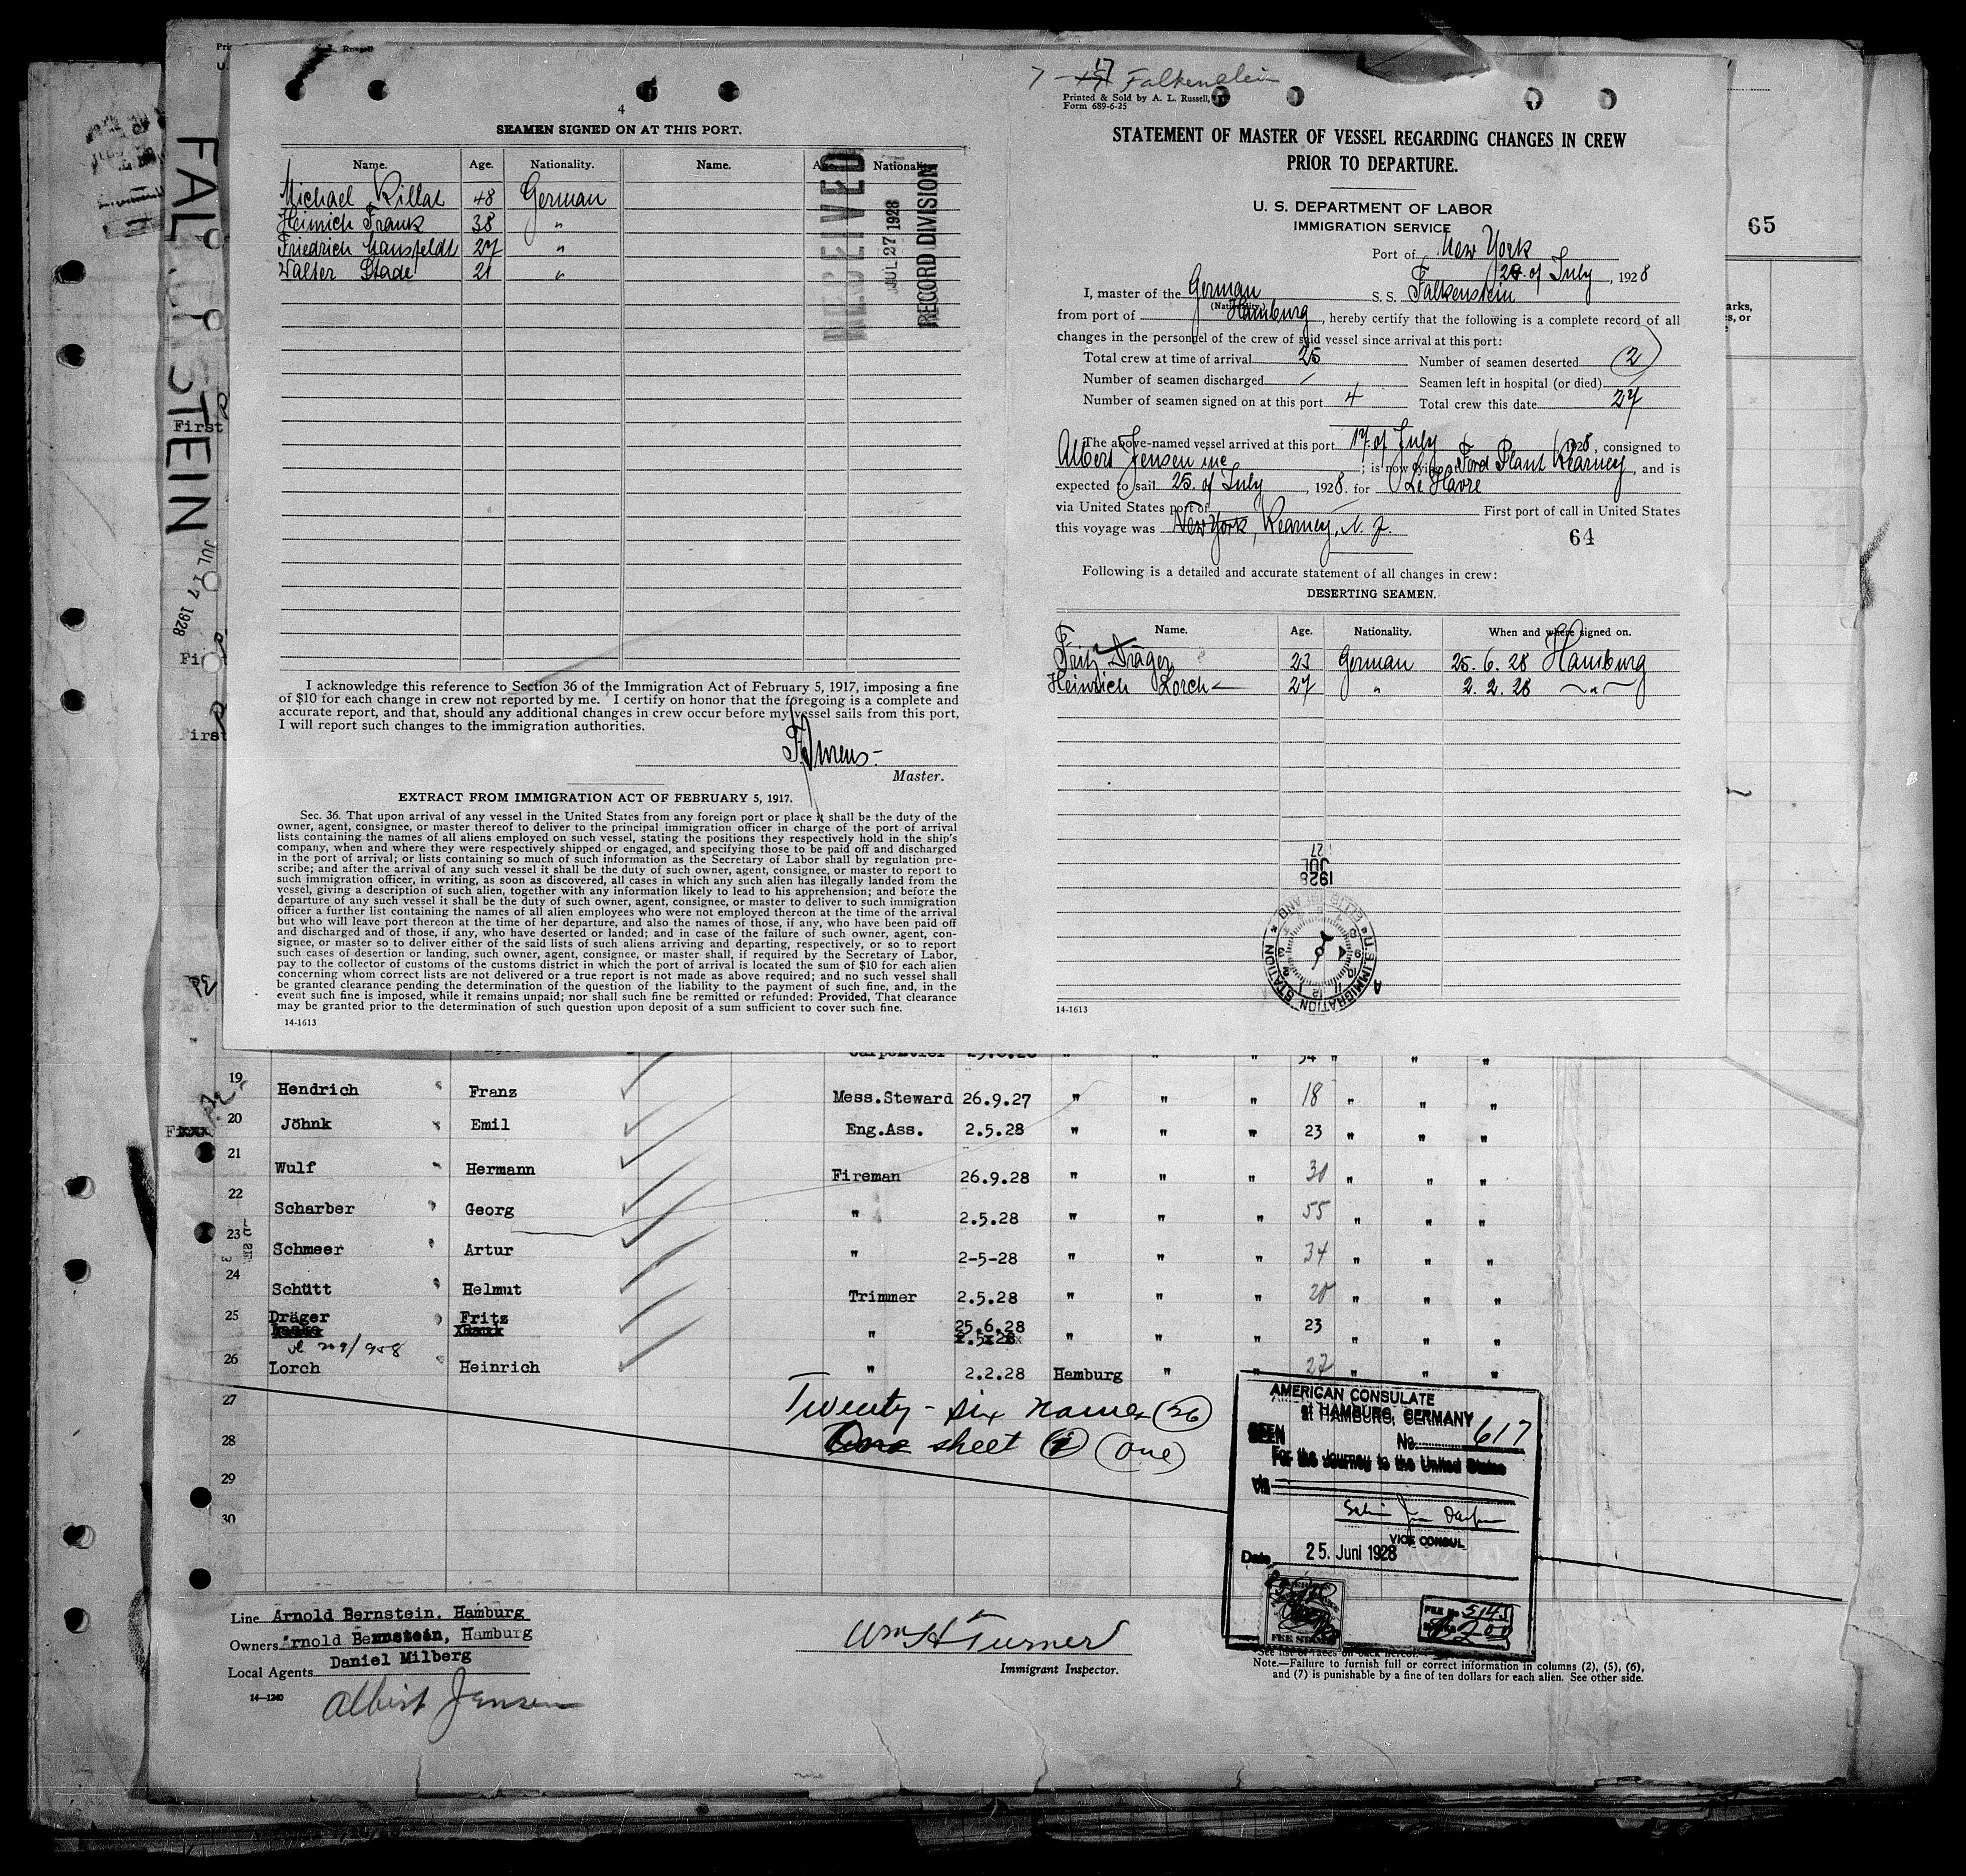 FALKENSTEIN
JUL 17 1928
4
SEAMEN SIGNED ON AT THIS PORT.
Name. Age. Nationality. Name. Age. Nationality.
Michael Killat 48 German
Heinrich Frank 38 "
Friedrich Hansfeldt 27 "
Walter Stade 21 "
RECEIVED
JUL 27 1928
RECORD DIVISION
I acknowledge this reference to Section 36 of the Immigration Act of February 5, 1917, imposing a fine
of $10 for each change in crew not reported by me. I certify on honor that the foregoing is a complete and
accurate report, and that, should any additional changes in crew occur before my vessel sails from this port,
I will report such changes to the immigration authorities.
Master.
EXTRACT FROM IMMIGRATION ACT OF FEBRUARY 5, 1917.
Sec. 36. That upon arrival of any vessel in the United States from any foreign port or place it shall be the duty of the
owner, agent, consignee, or master thereof to deliver to the principal immigration officer in charge of the port of arrival
lists containing the names of all aliens employed on such vessel, stating the positions they respectively hold in the ship's
company, when and where they were respectively shipped or engaged, and specifying those to be paid off and discharged
in the port of arrival; or lists containing so much of such information as the Secretary of Labor shall by regulation pre-
scribe; and after the arrival of any such vessel it shall be the duty of such owner, agent, consignee, or master to report to
such immigration officer, in writing, as soon as discovered, all cases in which any such alien has illegally landed from the
vessel, giving a description of such alien, together with any information likely to lead to his apprehension; and before the
departure of any such vessel it shall be the duty of such owner, agent, consignee, or master to deliver to such immigration
officer a further list containing the names of all alien employees who were not employed thereon at the time of the arrival
but who will leave port thereon at the time of her departure, and also the names of those, if any, who have been paid off
and discharged and of those, if any, who have deserted or landed; and in case of the failure of such owner, agent, con-
signee, or master so to deliver either of the said lists of such aliens arriving and departing, respectively, or so to report
such cases of desertion or landing, such owner, agent, consignee, or master shall, if required by the Secretary of Labor,
pay to the collector of customs of the customs district in which the port of arrival is located the sum of $10 for each alien
concerning whom correct lists are not delivered or a true report is not made as above required; and no such vessel shall
be granted clearance pending the determination of the question of the liability to the payment of such fine, and, in the
event such fine is imposed, while it remains unpaid; nor shall such fine be remitted or refunded: Provided, That clearance
may be granted prior to the determination of such question upon deposit of a sum sufficient to cover such fine.
14-1613
7 - 17 Falkenstein
Printed & Sold by A. L. Russell,
Form 689-6-25
STATEMENT OF MASTER OF VESSEL REGARDING CHANGES IN CREW
PRIOR TO DEPARTURE.
U. S. DEPARTMENT OF LABOR
IMMIGRATION SERVICE
Port of New York
of July, 1928
I, master of the German S. S. Falkenstein
(Nationality)
from port of Hamburg, hereby certify that the following is a complete record of all
changes in the personnel of the crew of said vessel since arrival at this port:
Total crew at time of arrival 25 Number of seamen deserted 2
Number of seamen discharged / Seamen left in hospital (or died)
Number of seamen signed on at this port 4 Total crew this date 27
The above-named vessel arrived at this port 17. of July 1928, consigned to
Albert Jensen inc; is now lying at Ford Plant Kearney, and is
expected to sail 25. of July, 1928. for Le Havre
via United States port of First port of call in United States
this voyage was New York, Kearney, N. J.
64
65
Following is a detailed and accurate statement of all changes in crew:
DESERTING SEAMEN.
Name. Age. Nationality. When and where signed on.
Fritz Dräger 23 German 25. 6. 28 Hamburg
Heinrich Lorch 27 " 2. 2. 28 "
JUL 27 1928
U.S. IMMIGRATION STATION ELLIS ISLAND
14-1613
19 Hendrich Franz Mess.Steward 26.9.27 " " " 18 " " "
20 Jöhnk Emil Eng.Ass. 2.5.28 " " " 23 " " "
21 Wulf Hermann Fireman 26.9.28 " " " 30 " " "
22 Scharber Georg " 2.5.28 " " " 55 " " "
23 Schmeer Artur " 2-5-28 " " " 34 " " "
24 Schütt Helmut Trimmer 2.5.28 " " " 20 " " "
25 Dräger Fritz " 25.6.28 " " " 23 " " "
26 Lorch Heinrich " 2.2.28 Hamburg " " 27 " " "
27
28
29
30
Twenty-six names (26)
One sheet (1) (one)
AMERICAN CONSULATE
at HAMBURG, GERMANY
SEEN No. 617
For the Journey to the United States
via
VICE CONSUL
Date 25. Juni 1928
FEE STAMP
Line Arnold Bernstein. Hamburg
Owners Arnold Bernstein, Hamburg
Local Agents Daniel Milberg
14-1240
Albert Jensen
Wm H Turner
Immigrant Inspector.
See list of races on back hereof.
Note.—Failure to furnish full or correct information in columns (2), (5), (6),
and (7) is punishable by a fine of ten dollars for each alien. See other side.